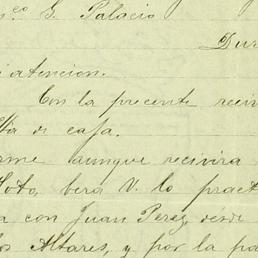 sco G. Palacio
Dur
i atencion.
Con la precente reciv
lta de caja.
rme aunque recivira
Soto, bera V. lo pract
a con Juan Perez, désde
los Altares, y por la pa